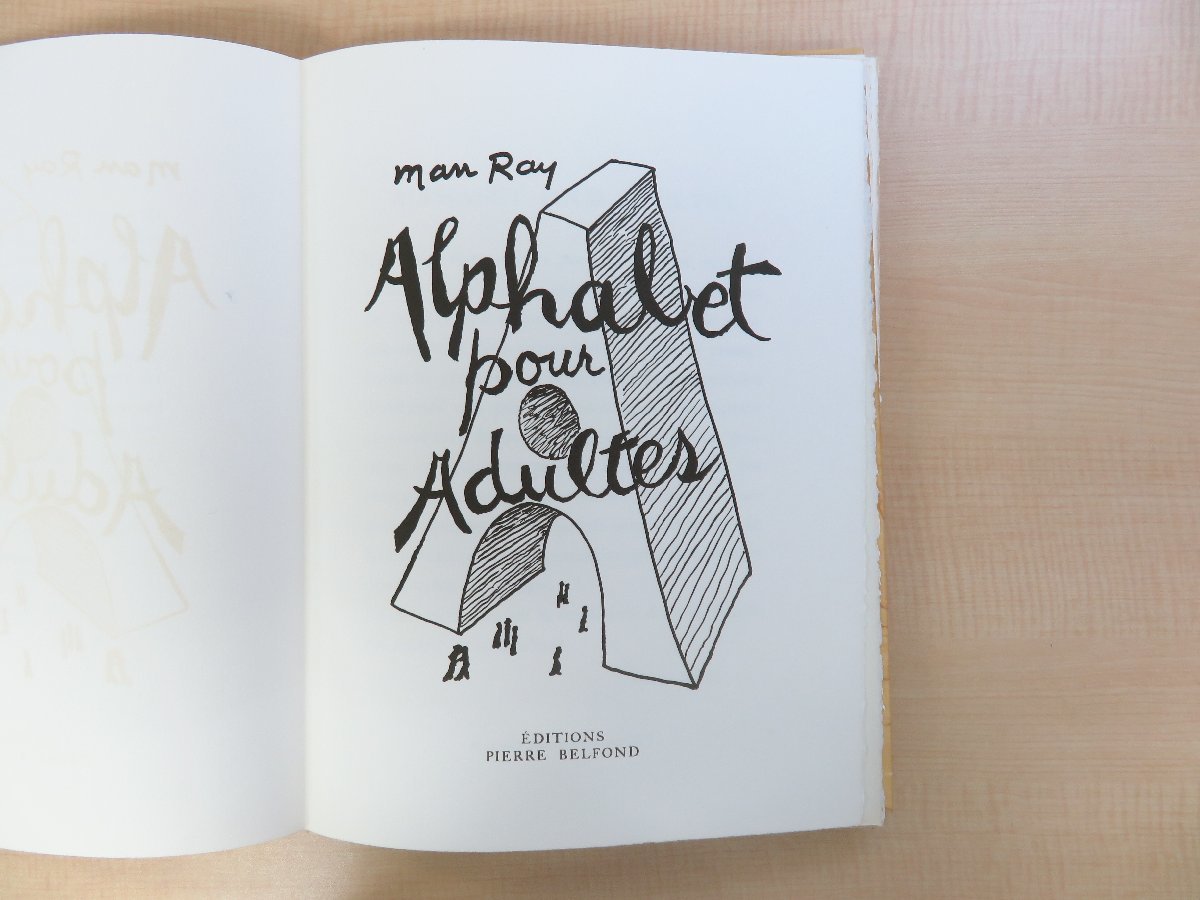 man Ray
Alphabet
pour
Adultes
ÉDITIONS
PIERRE BELFOND